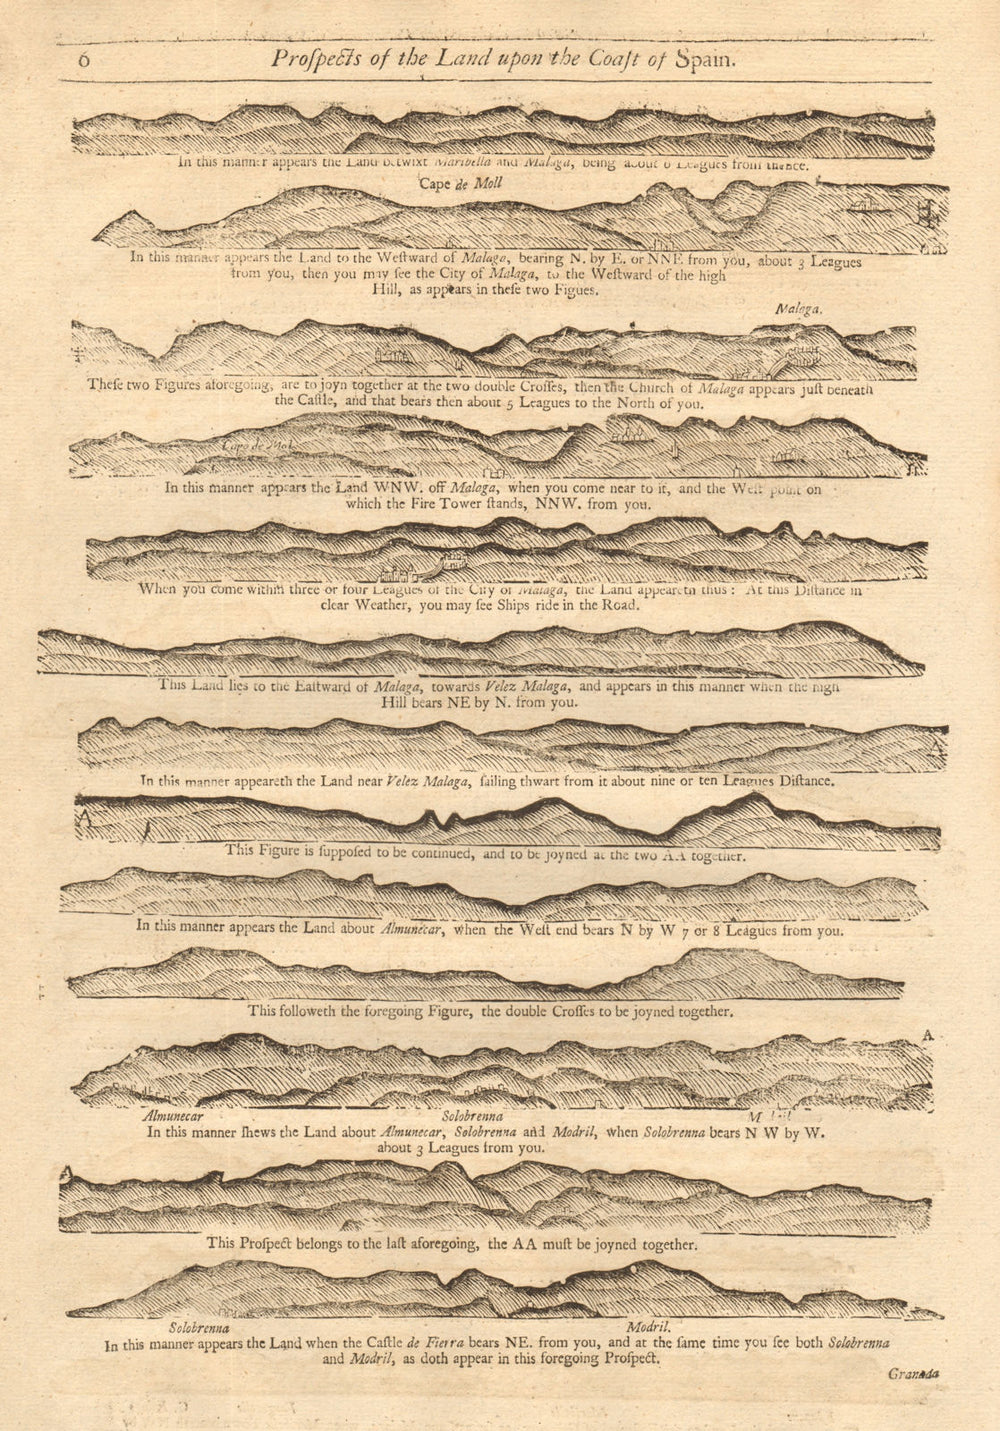 6
Proſpects of the Land upon the Coaſt of Spain.
In this manner appears the Land betwixt Maribella and Malaga, being about 6 Leagues from thence.
Cape de Moll
In this manner appears the Land to the Weſtward of Malaga, bearing N. by E. or NNE from you, about 3 Leagues
from you, then you may ſee the City of Malaga, to the Weſtward of the high
Hill, as appears in theſe two Figues.
Malaga.
Theſe two Figures aforegoing, are to joyn together at the two double Croſſes, then the Church of Malaga appears juſt beneath
the Caſtle, and that bears then about 5 Leagues to the North of you.
Cape de Mol
In this manner appears the Land WNW. off Malaga, when you come near to it, and the Weſt point on
which the Fire Tower ſtands, NNW. from you.
When you come within three or four Leagues of the City of Malaga, the Land appeareth thus: At this Diſtance in
clear Weather, you may ſee Ships ride in the Road.
This Land lies to the Eaſtward of Malaga, towards Velez Malaga, and appears in this manner when the high
Hill bears NE by N. from you.
A
In this manner appeareth the Land near Velez Malaga, ſailing thwart from it about nine or ten Leagues Diſtance.
A
This Figure is ſuppoſed to be continued, and to be joyned at the two AA together.
In this manner appears the Land about Almunecar, when the Weſt end bears N by W 7 or 8 Leagues from you.
This followeth the foregoing Figure, the double Croſſes to be joyned together.
A
Almunecar Solobrenna
In this manner ſhews the Land about Almunecar, Solobrenna and Modril, when Solobrenna bears N W by W.
about 3 Leagues from you.
A
This Proſpect belongs to the laſt aforegoing, the AA muſt be joyned together.
Solobrenna Modril.
In this manner appears the Land when the Caſtle de Fierra bears NE. from you, and at the ſame time you ſee both Solobrenna
and Modril, as doth appear in this foregoing Proſpect.
Granada